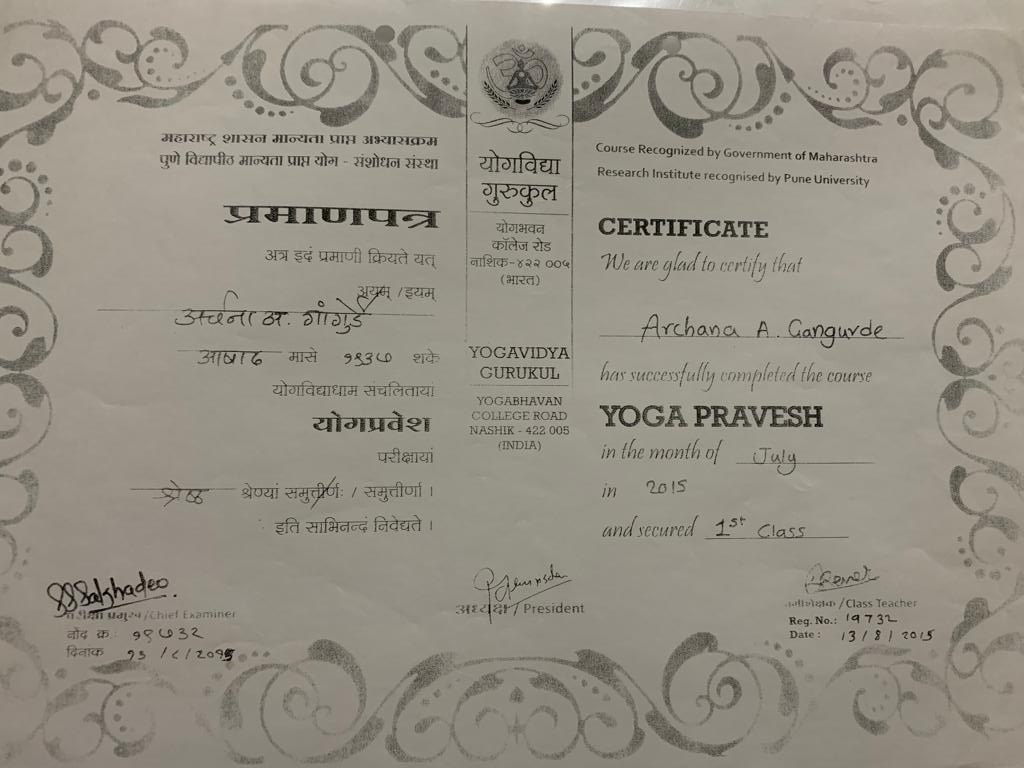 महाराष्ट्र शासन मान्यता प्राप्त अभ्यासक्रम
पुणे विद्यापीठ मान्यता प्राप्त योग - संशोधन संस्था
प्रमाणपत्र
अत्र इदं प्रमाणी क्रियते यत्
अयम् / इयम्
अर्चना अ. गांगुर्डे
आषाढ मासे १९३७ शके
योगविद्याधाम संचलितायां
योगप्रवेश
परीक्षायां
श्रेष्ठ श्रेण्यां समुत्तीर्णः / समुत्तीर्णा ।
इति साभिनन्दं निवेद्यते ।
परीक्षा प्रमुख / Chief Examiner
नोंद क्र. : १९७३२
दिनांक १३ / ८ / २०१५
योगविद्या
गुरुकुल
योगभवन
कॉलेज रोड
नाशिक-४२२ ००५
(भारत)
YOGAVIDYA
GURUKUL
YOGABHAVAN
COLLEGE ROAD
NASHIK - 422 005
(INDIA)
अध्यक्ष / President
Course Recognized by Government of Maharashtra
Research Institute recognised by Pune University
CERTIFICATE
We are glad to certify that
Archana A. Gangurde
has successfully completed the course
YOGA PRAVESH
in the month of July
in 2015
and secured 1st Class
/ Class Teacher
Reg. No.: 19732
Date : 13 / 8 / 2015